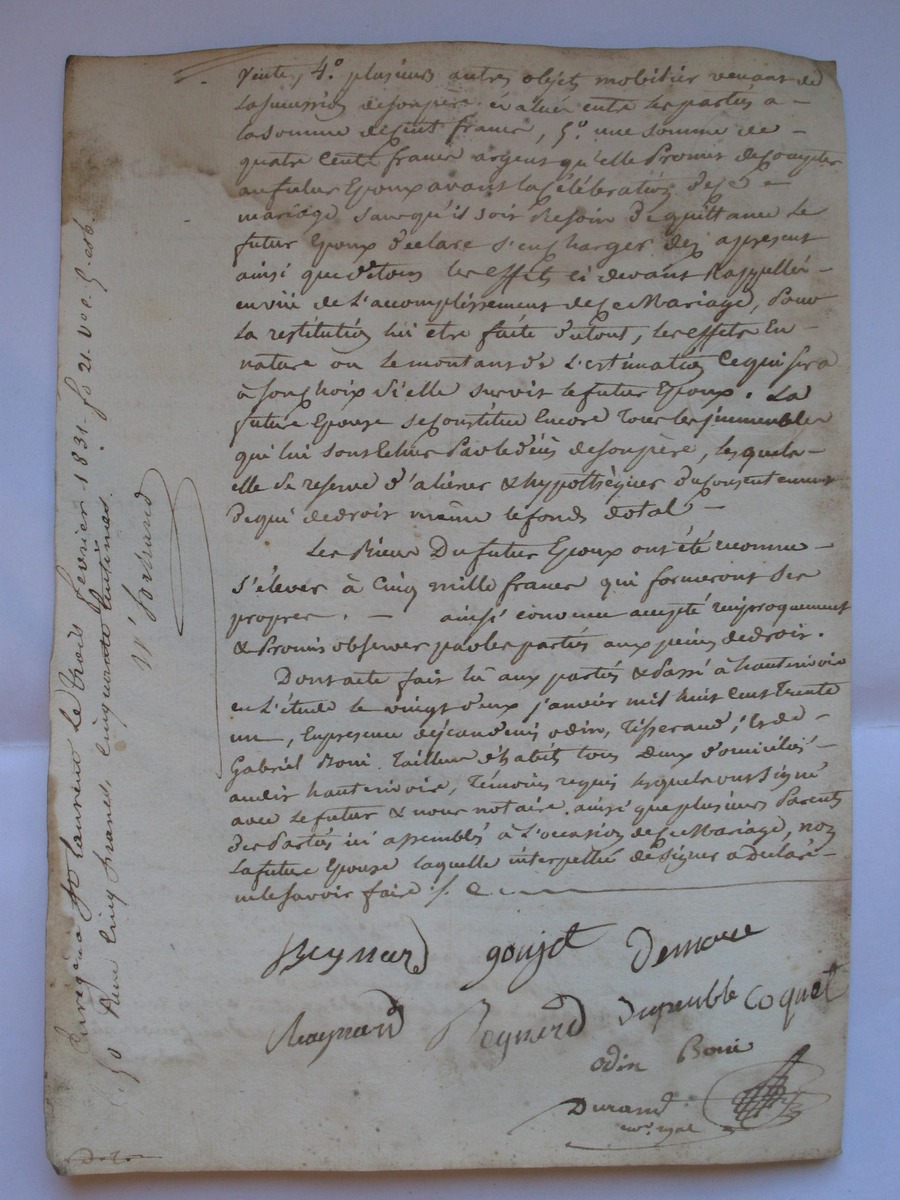 4.° plusieurs autres objets mobilier venant de
la succession de son père évalués entre les parties a
la somme de cent francs, 5.° une somme de
quatre cents francs argent qu'elle Promet de compter
au futur Epoux avant la Célébration de ce
mariage sans qu'il soit Besoin de quittance le
futur Epoux declare s'en charger des apresent
ainsi que de tous les effets ci devant Rappellés
en vue de l'accomplissement de ce Mariage, Pour
La restitution lui etre faite du tout, les effets En
nature ou le montant de l'estimation ce qui sera
à son choix si elle survit le futur Epoux. La
future Epouse se constitue Encore tous les immeubles
qui lui sont Echus Par le décès de son père, lesquels
elle se reserve d'aliéner & hypothèquer du consentement
de qui de droit même le fonds dotal
Les Biens Du futur Epoux ont été reconnu
s'élever à Cinq mille francs qui formeront ses
propres. ainsi convenu accepté réciproquement
& Promis observer par les parties aux peines de droit.
Dont acte fait lû aux parties & Passé à hauterivoire
en L'étude le vingt deux janvier mil huit cent trente
un, En presence de jean denis odin, Tisserand, & de
Gabriel Boni Tailleur d'habits tous deux domiciliés
audit hauterivoire, Témoins requis lesquels ont Signé
avec le futur & nous notaire ainsi que plusieurs Parents
des Parties ici assemblés à l'occasion de ce Mariage, non
la future Epouse laquelle interpellée de signer a Déclaré
ne le savoir faire ./.
Reynard goujet
Raynard Reynard Dupeuble Coquet
odin Boni
Durand
not. royal
Enregistré à St Laurent Le trois fevrier 1831. fo 21. Vo C. 5. et 6.
Reçu cinq francs, cinquante centimes.